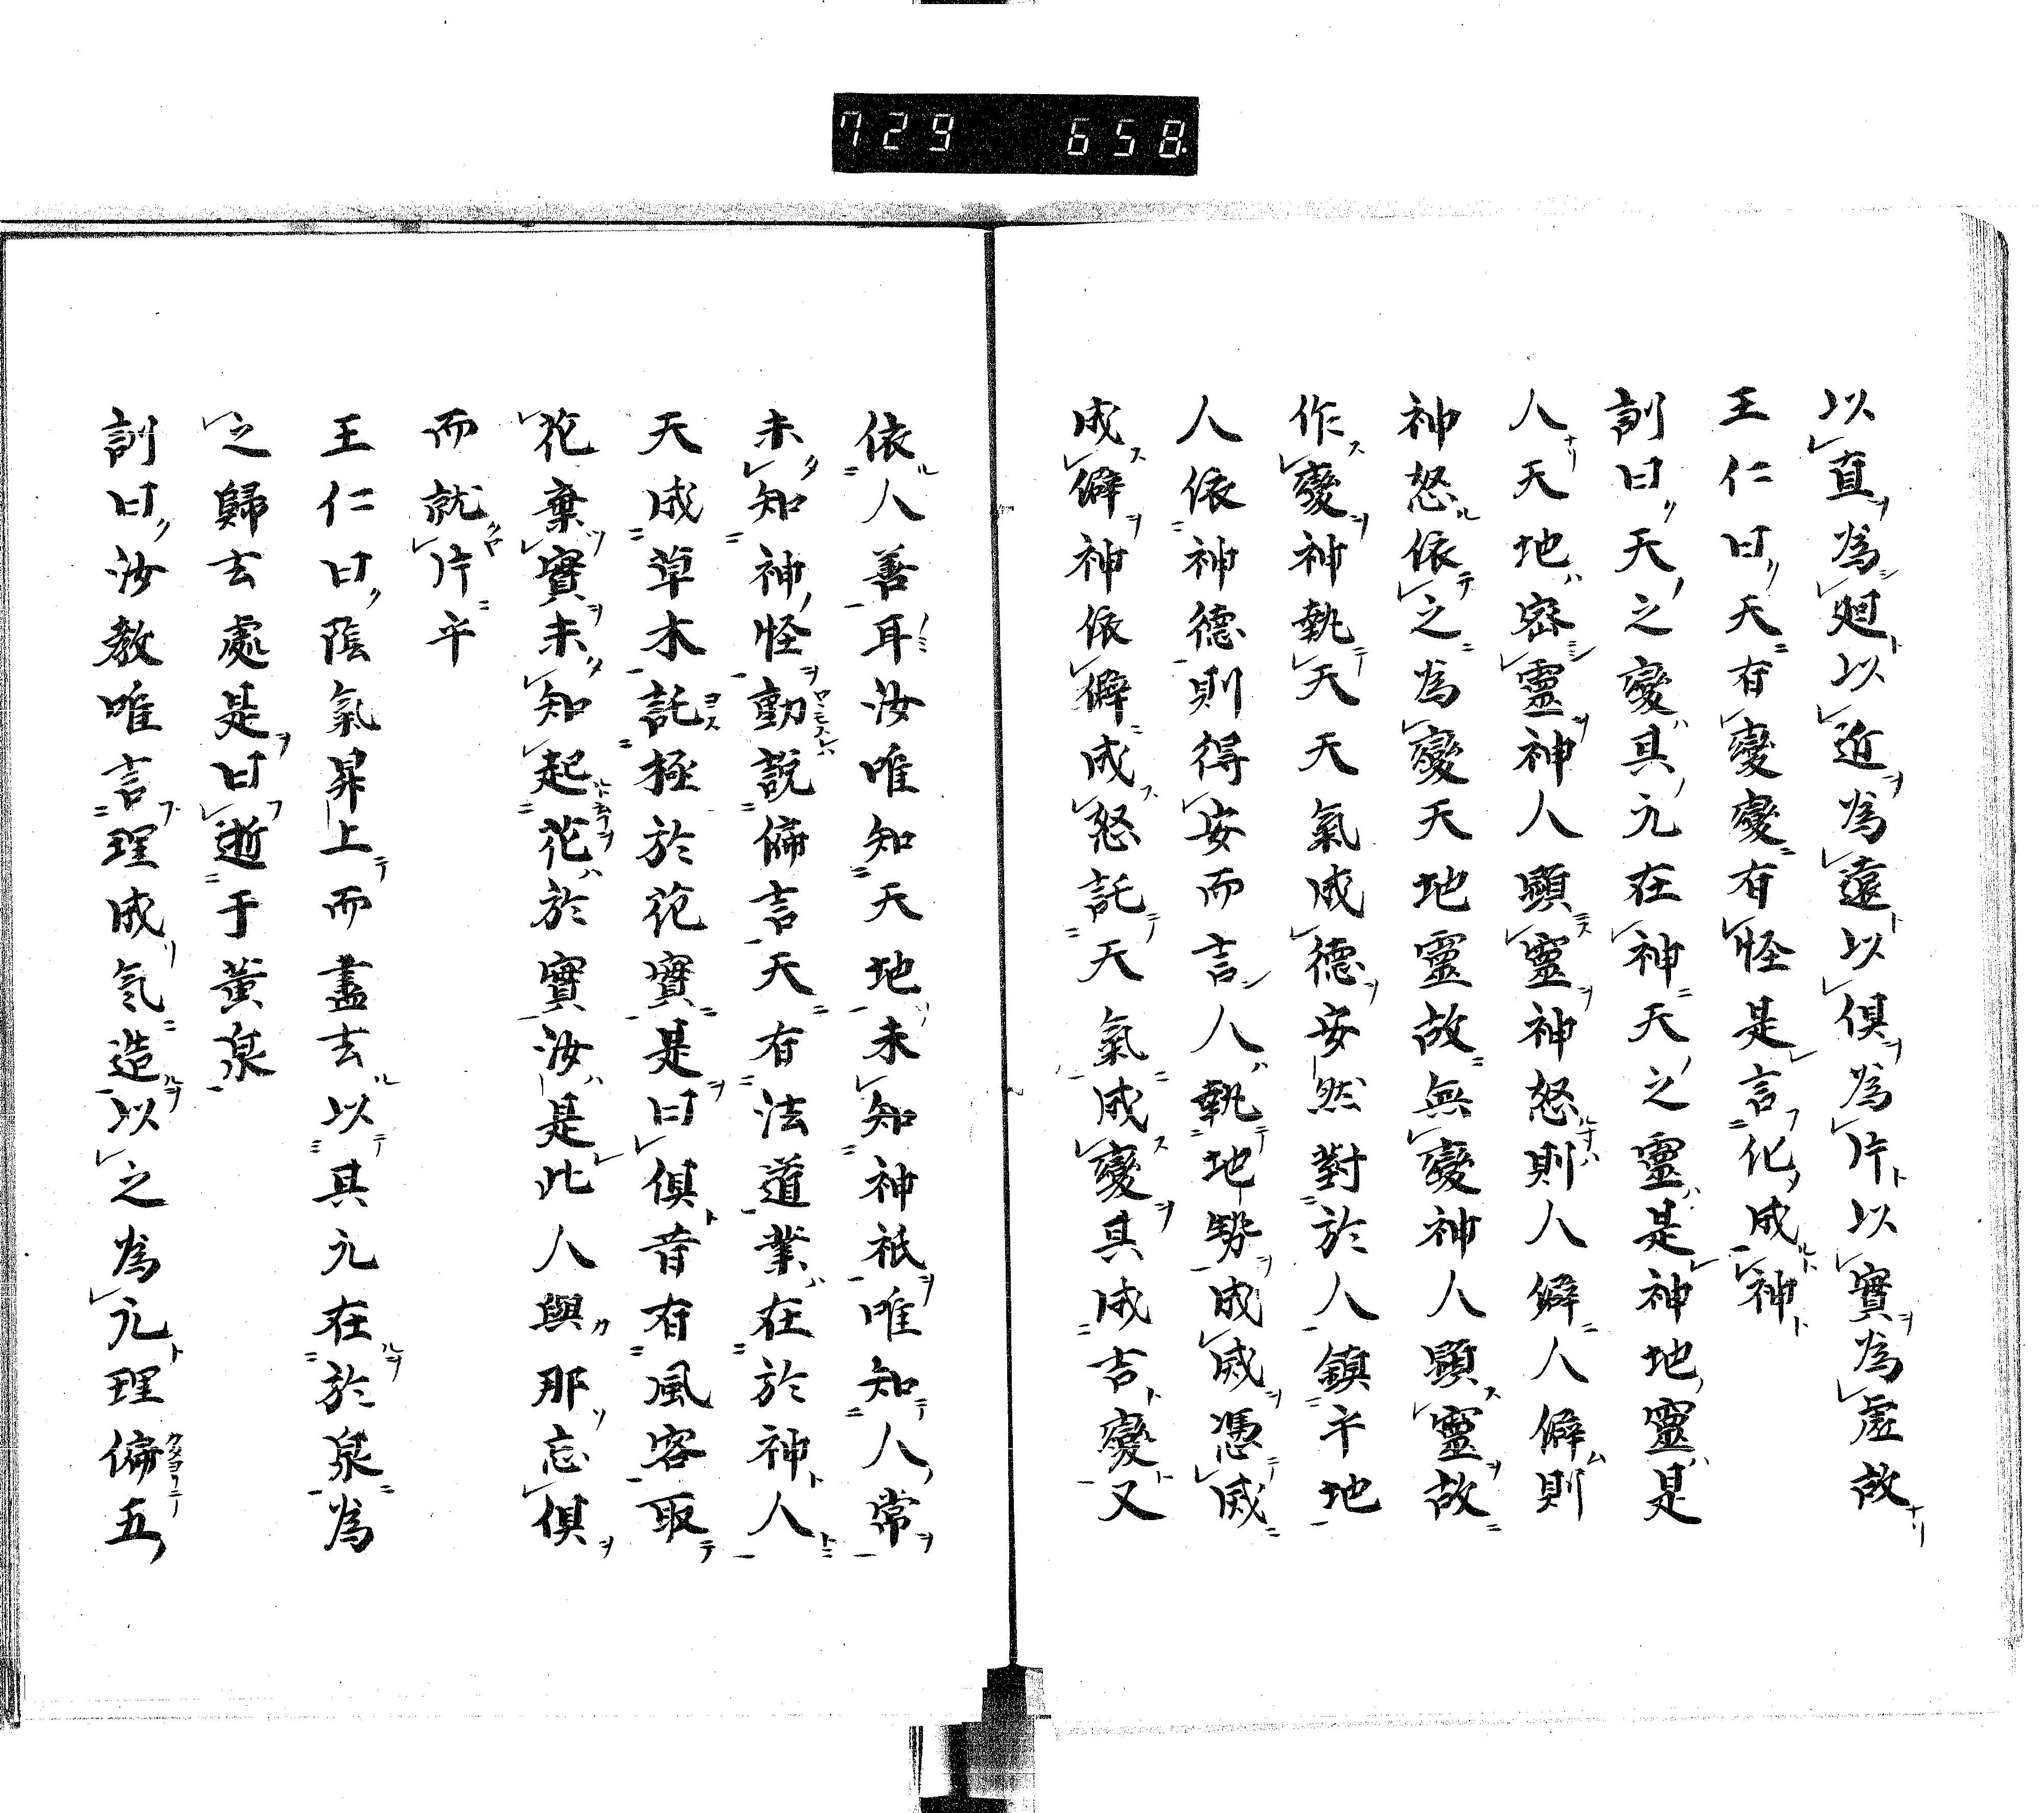 729 658
以直為廻以近為遠以倶為片以實為虛故
王仁曰天有變變有怪是言化成神
訓曰天之變其元在神天之靈是神地靈是
人天地密靈神人顯靈神怒則人僻人僻則
神怒依之為變天地靈故無變神人顯靈故
作變神執天天氣成德安然對於人鎮乎地
人依神德則得安而言人執地勢成威憑威
成僻神依僻成怒託天氣成變其成吉變又
依人善耳汝唯知天地未知神祇唯知人常
未知神怪動說偏言天有法道業在於神人
天成草木託極於花實是曰倶昔有風客取
花棄實未知起花於實汝是此人與那忘倶
而就片乎
王仁曰陰氣昇上而盡去以其元在於泉為
之歸去處是曰逝于黃泉
訓曰汝教唯言理成氣造以之為元理偏五